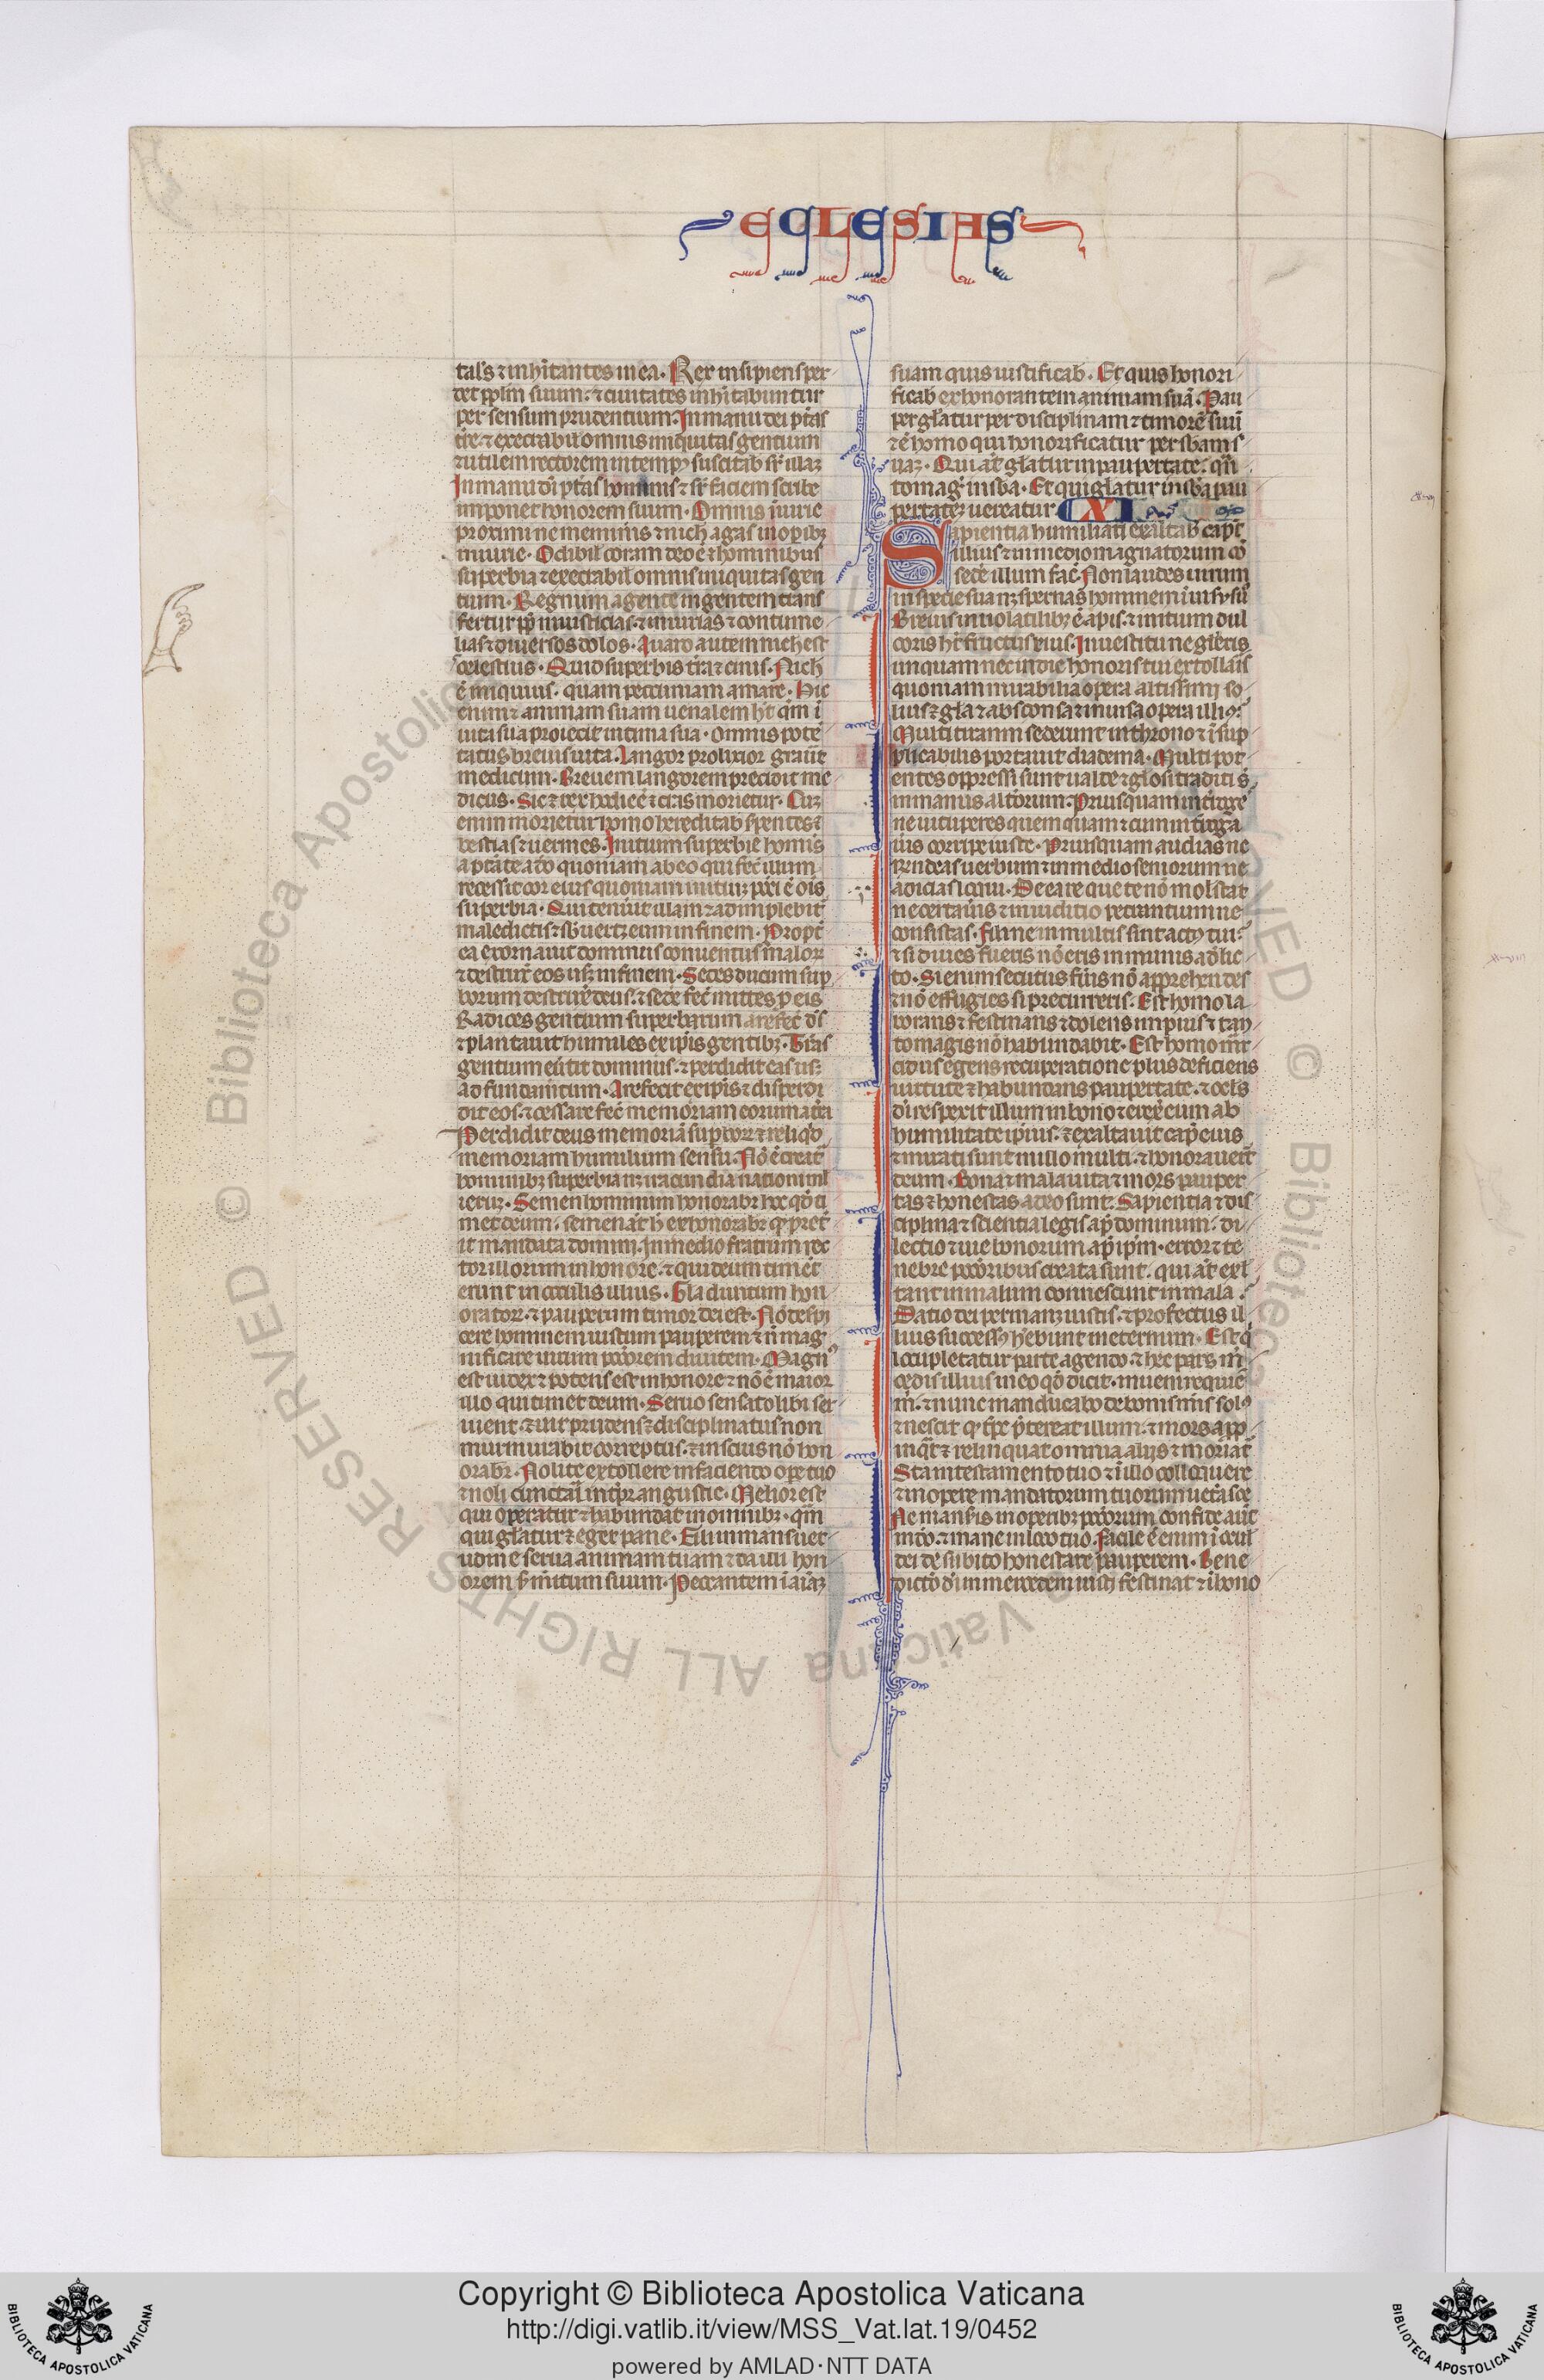 ECCLESIAS
talis ⁊ inhitantes in ea. Rex insipiens per
det pplm suum: ⁊ ciuitates inhitabuntur
per sensum prudentium. In manu dei ptas
tre. ⁊ execrabil omnis iniquitas gentium
⁊ utilem rectorem in temp9 suscitab sr illaz
In manu di ptas hominis ⁊ sr faciem scribe
imponet honorem suum. Omnis iniurie
proximi ne memineris ⁊ nich agas in opibz
iniurie. Odibil coram deo e ⁊ hominibus
superbia ⁊ execrabil omnis iniquitas gen
tium. Regnum a gente in gentem trans
fertur pp iniusticias. ⁊ iniurias ⁊ contume
lias ⁊ diuersos dolos. Auaro autem nich est
scelestius. Quid superbis tra ⁊ cinis. Nich
e iniquius. quam peccuniam amare. Hic
enim ⁊ animam suam uenalem ht qm i
uita sua proiecit intima sua. Omnis pote
tatus breuis uita. Langor prolixior grauat
medicum. Breuem langorem precidit me
dicus. Sic ⁊ rex hodie e ⁊ cras morietur. Cuz
enim morietur homo hereditab serpentes ⁊
bestias ⁊ uermes. Initium superbie homis
apostate a do quoniam ab eo qui fec illum
recessit cor eius quoniam initiuz pcci e ois
superbia. Qui tenuit illam ⁊ adimplebit
maledictis ⁊ sbuertz eum in finem. Propt
ea exornauit dominus conuentus malor
⁊ destruxt eos usz in finem. Sedes ducum sup
borum destruxt deus. ⁊ sede fec mittes p eis
Radices gentium superbarum arefec ds
⁊ plantauit humiles ex ipis gentibz. Tras
gentium eutit dominus. ⁊ perdidit eas usz
ad fundamtum. Arefecit ex ipis ⁊ disperdi
dit eos. ⁊ cessare fec memoriam eorum a tra
Perdidit deus memoria supbor ⁊ reliqd
memoriam humilium sensu. No e creat
hominibz superbia nz iracundia nationi ml
ieruz. Semen hominum honorabr hec qd ti
met deum. semen at h exhonorabr q pret
it mandata domini. In medio fratrum rec
tor illorum in honore. ⁊ qui deum timet
erunt in occulis illius. Gla diuitum hon
orator. ⁊ pauperum timor dei est. No despi
cere hominem iustum pauperem ⁊ n mag
nificare uirum pctorem diuitem. Magn9
est iudex ⁊ potens est in honore ⁊ no e maior
illo qui timet deum. Seruo sensato libi ser
uient. ⁊ uir prudens ⁊ disciplinatus non
murmurabit correptus. ⁊ inscius no hon
orabr. Nolite extollere in faciendo ope tuo
⁊ noli cunctari in tpr angustie. Melior est
qui operatur ⁊ habundat in omnibz. qm
qui glatur ⁊ eget pane. Fili in mansuet
udine serua animam tuam ⁊ da illi hon
orem s mitum suum. Peccantem i aiaz
suam quis iustificab. Et quis honori
ficab exhonorantem animam sua. Pau
per glatur per disciplinam ⁊ timore sui
⁊ e homo qui honorificatur per sbam s
uaz. Qui at glatur in paupertate. qn
to mag in sba. Et qui glatur in sba pau
pertatez uereatur. CXI
Sapientia humiliati exaltab capt
illius ⁊ in medio magnatorum co
sede illum fac. Non laudes uirum
in specie sua nz spernas hominem i uisu su
Breuis in uolatilibz e apis. ⁊ initium dul
coris ht fructus eius. In uestitu ne glieris
unquam nec in die honoris tui extollaris
quoniam mirabilia opera altissimi so
lius ⁊ gla ⁊ absconsa ⁊ inuisa opera illi9.
Multi tiranni sederunt in throno ⁊ isup
plicabilis portauit diadema. Multi pot
entes oppressi sunt ualde ⁊ glosi traditi s
in manus altorum. Priusquam introge
ne uituperes quemquam ⁊ cum introga
uis corripe iuste. Priusquam audias ne
rendeas uerbum ⁊ in medio seniorum ne
adicias loqui. De ea re que te no molstat
ne certaueris ⁊ in iuditio peccantium ne
consistas. Fili ne in multis sint act9 tui.
⁊ si diues fueris no eris immunis a delic
to. Si enim secutus fuis no apprehendes
⁊ no effugies si precurreris. Est homo la
borans ⁊ festinans ⁊ dolens impius ⁊ tan
to magis no habundabit. Est homo mr
cidus egens recuperatione plus deficiens
uirtute ⁊ habundans paupertate. ⁊ ocls
di respexit illum in bono ⁊ erexit eum ab
humilitate ipius. ⁊ exaltauit cap eius
⁊ mirati sunt in illo multi. ⁊ honorauert
deum. Bona ⁊ mala uita ⁊ mors pauper
tas ⁊ honestas a deo sunt. Sapientia ⁊ dis
ciplina ⁊ scientia legis ap dominum. di
lectio ⁊ uie bonorum ap ipm. error ⁊ te
nebre pctoribus creata sunt. qui at exl
tant in malum consescunt in mala.
Datio dei permanz iustis. ⁊ profectus il
lius success9 hebunt in eternum. Est q
locupletatur parte agendo. ⁊ hec pars m
cedis illius in eo qd dicit. inueni requie
m. ⁊ nunc manducabo de bonis mis sol9
⁊ nescit q tpr ptereat illum. ⁊ mors app
inqt ⁊ relinquat omnia aliis ⁊ moriat
Sta in testamento tuo ⁊ i illo colloquere
⁊ in opere manditorum tuorum uetasce
Ne mansis in operibz pctorum confide aut
in do. ⁊ mane in loco tuo. Facile e enim i ocul
dei de subito honestare pauperem. Bene
dicto di in mercedem iusti festinat ⁊ i hono
Copyright © Biblioteca Apostolica Vaticana
http://digi.vatlib.it/view/MSS_Vat.lat.19/0452
powered by AMLAD·NTT DATA
BIBLIOTECA APOSTOLICA VATICANA
BIBLIOTECA APOSTOLICA VATICANA